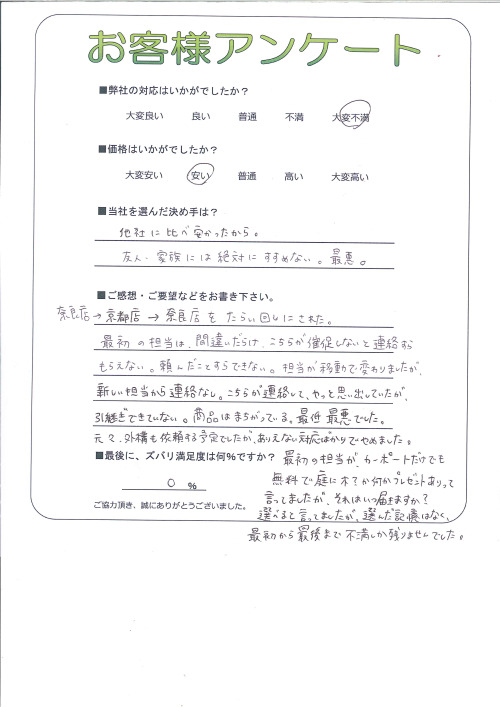 お客様アンケート
■弊社の対応はいかがでしたか？
大変良い 良い 普通 不満 大変不満
■価格はいかがでしたか？
大変安い 安い 普通 高い 大変高い
■当社を選んだ決め手は？
他社に比べ安かったから。
友人・家族には絶対にすすめない。最悪。
■ご感想・ご要望などをお書き下さい。
奈良店→京都店→奈良店をたらい回しにされた。
最初の担当は、間違いだらけ、こちらが催促しないと連絡すら
もらえない。頼んだことすらできない。担当が移動で変わりましたが、
新しい担当から連絡なし。こちらが連絡して、やっと思い出していたが、
引継ぎできていない。商品はまちがっている。最低最悪でした。
元々、外構も依頼する予定でしたが、ありえない対応ばかりでやめました。
■最後に、ズバリ満足度は何%ですか？
0 %
ご協力頂き、誠にありがとうございました。
最初の担当が、カーポートだけでも
無料で庭に木？か何かプレゼントありって
言ってましたが、それはいつ届きますか？
選べると言ってましたが、選んだ記憶はなく、
最初から最後まで不満しか残りませんでした。